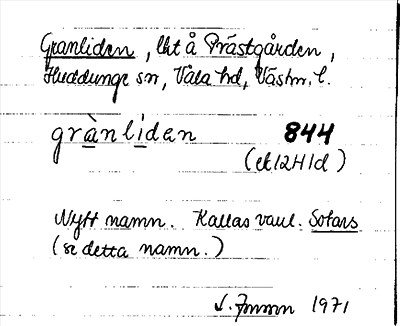 Granliden, lht å Prästgården,
Huddunge sn, Våla hd, Västm. l.
grànlíden 844
(ek 12H1d)
Nytt namn. Kallas vanl. Sofars
(se detta namn.)
1971